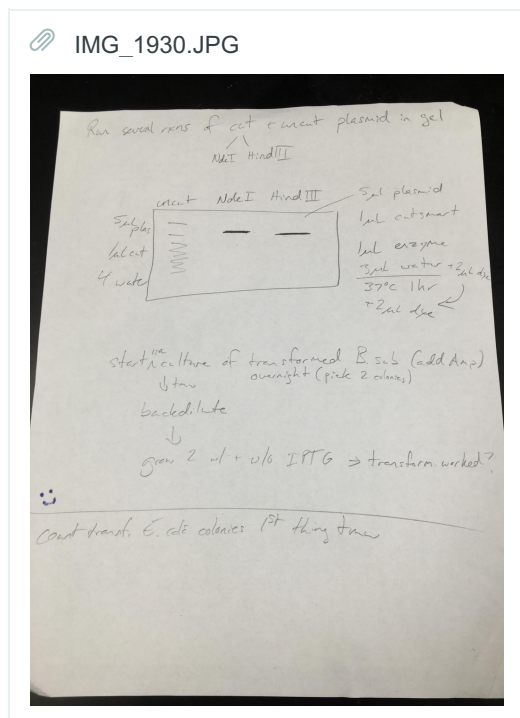 IMG_1930.JPG
Run several rxns of cut + uncut plasmid in gel
NdeI HindIII
uncut NdeI HindIII
5µL plas
1µL cut
4 water
5µL plasmid
1µL cutsmart
1µL enzyme
3µL water +2µL dye
37°C 1hr
+2µL dye
start culture of transformed B. sub (add Amp)
overnight (pick 2 colonies)
↓ tmw
backdilute
↓
grow 2 w/ + w/o IPTG → transform worked?
Count transf. E. coli colonies 1st thing tmw